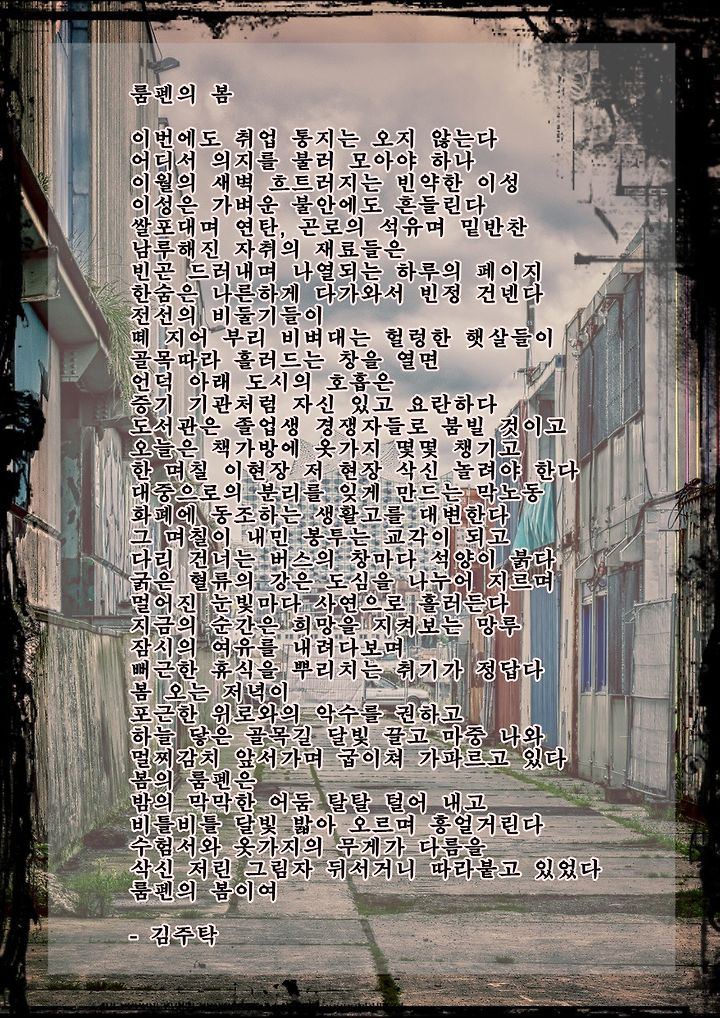 룸펜의 봄
이번에도 취업 통지는 오지 않는다
어디서 의지를 불러 모아야 하나
이월의 새벽 흐트러지는 빈약한 이성
이성은 가벼운 불안에도 흔들린다
쌀포대며 연탄, 곤로의 석유며 밑반찬
남투해진 자취의 재료들은
빈곤 드러내며 나열되는 하루의 페이지
한숨은 나른하게 다가와서 빈정 건넨다
전선의 비둘기들이
떼 지어 부리 비벼대는 헐렁한 햇살들이
골목따라 흘러드는 창을 열면
언덕 아래 도시의 호흡은
증기 기관처럼 자신 있고 요란하다
도서관은 졸업생 경쟁자들로 붐빌 것이고
오늘은 책가방에 옷가지 몇몇 챙기고
한 며칠 이현장 저 현장 삭신 놀려야 한다
대중으로의 분리를 잊게 만드는 막노동
화폐에 동조하는 생활고를 대변한다
그 며칠이 내민 봉투는 교각이 되고
다리 건너는 버스의 창마다 석양이 붉다
굵은 혈류의 강은 도심을 나누어 지르며
멀어진 눈빛마다 사연으로 흘러든다
지금의 순간은 희망을 지켜보는 망루
잠시의 여유를 내려다보며
뻐근한 휴식을 뿌리치는 취기가 정답다
봄 오는 저녁이
포근한 위로와의 악수를 권하고
하늘 닿은 골목길 달빛 끌고 마중 나와
멀찌감치 앞서가며 굽이쳐 가파르고 있다
봄의 룸펜은
밤의 막막한 어둠 탈탈 털어 내고
비틀비틀 달빛 밟아 오르며 흥얼거린다
수험서와 옷가지의 무게가 다름을
삭신 저린 그림자 뒤서거니 따라붙고 있었다
룸펜의 봄이여
- 김주탁